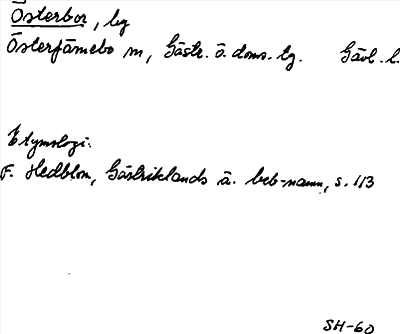 Österbor, bg
Österfärnebo sn, Gästr. ö. doms. tg. Gävl. l.
Etymologi:
F. Hedblom, Gästriklands ä. beb-namn, s. 113
SH-60